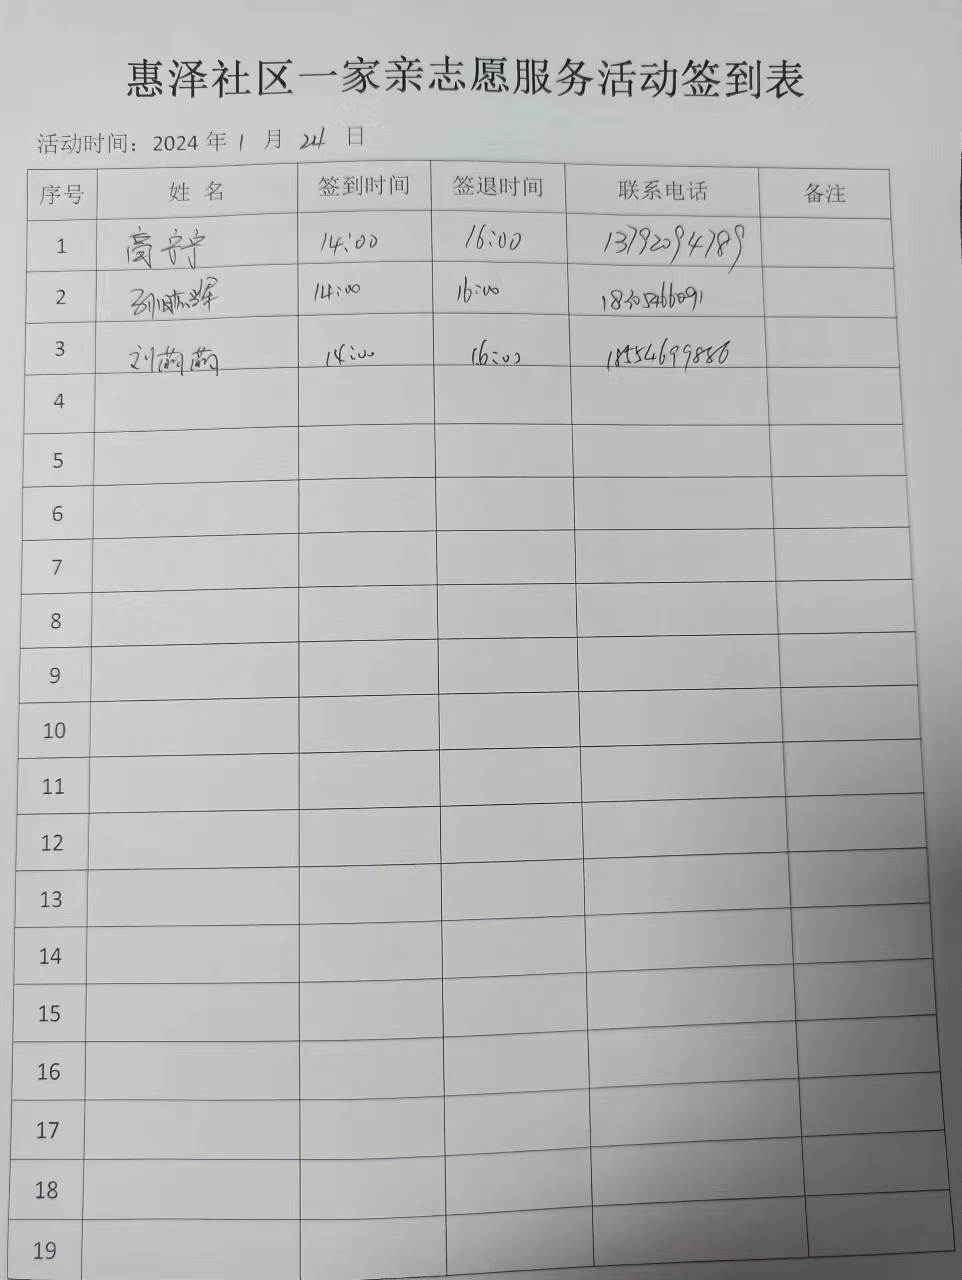 惠泽社区一家亲志愿服务活动签到表
活动时间：2024 年 1 月 24 日
序号 姓 名 签到时间 签退时间 联系电话 备注
1 高宁宁 14:00 16:00 13792094789
2 14:00 16:00
3 刘萌萌 14:00 16:00 18554699886
4
5
6
7
8
9
10
11
12
13
14
15
16
17
18
19